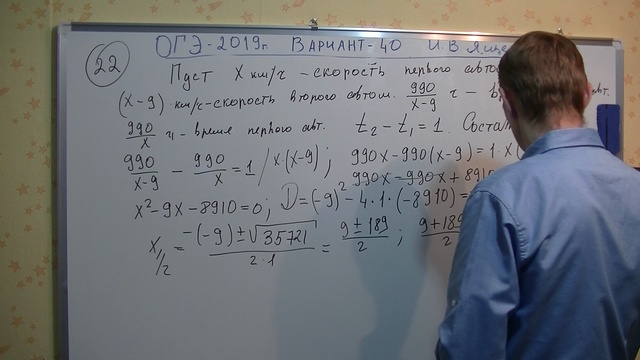 ОГЭ-2019г. ВАРИАНТ-40 И.В Яще
22 Пуст X км/ч - скорость первого автом
(x-9) км/ч-скорость второго автом. 990/(x-9) ч -
990/x ч - время первого авт. t₂ - t₁ = 1. Состав
990/(x-9) - 990/x = 1 / x·(x-9); 990x-990(x-9) = 1·x(
990x-990x + 8910
x²-9x-8910=0; D=(-9)²-4·1·(-8910)=
x₁/₂ = (-(-9)±√35721)/(2·1) = (9±189)/2; (9+189)/2